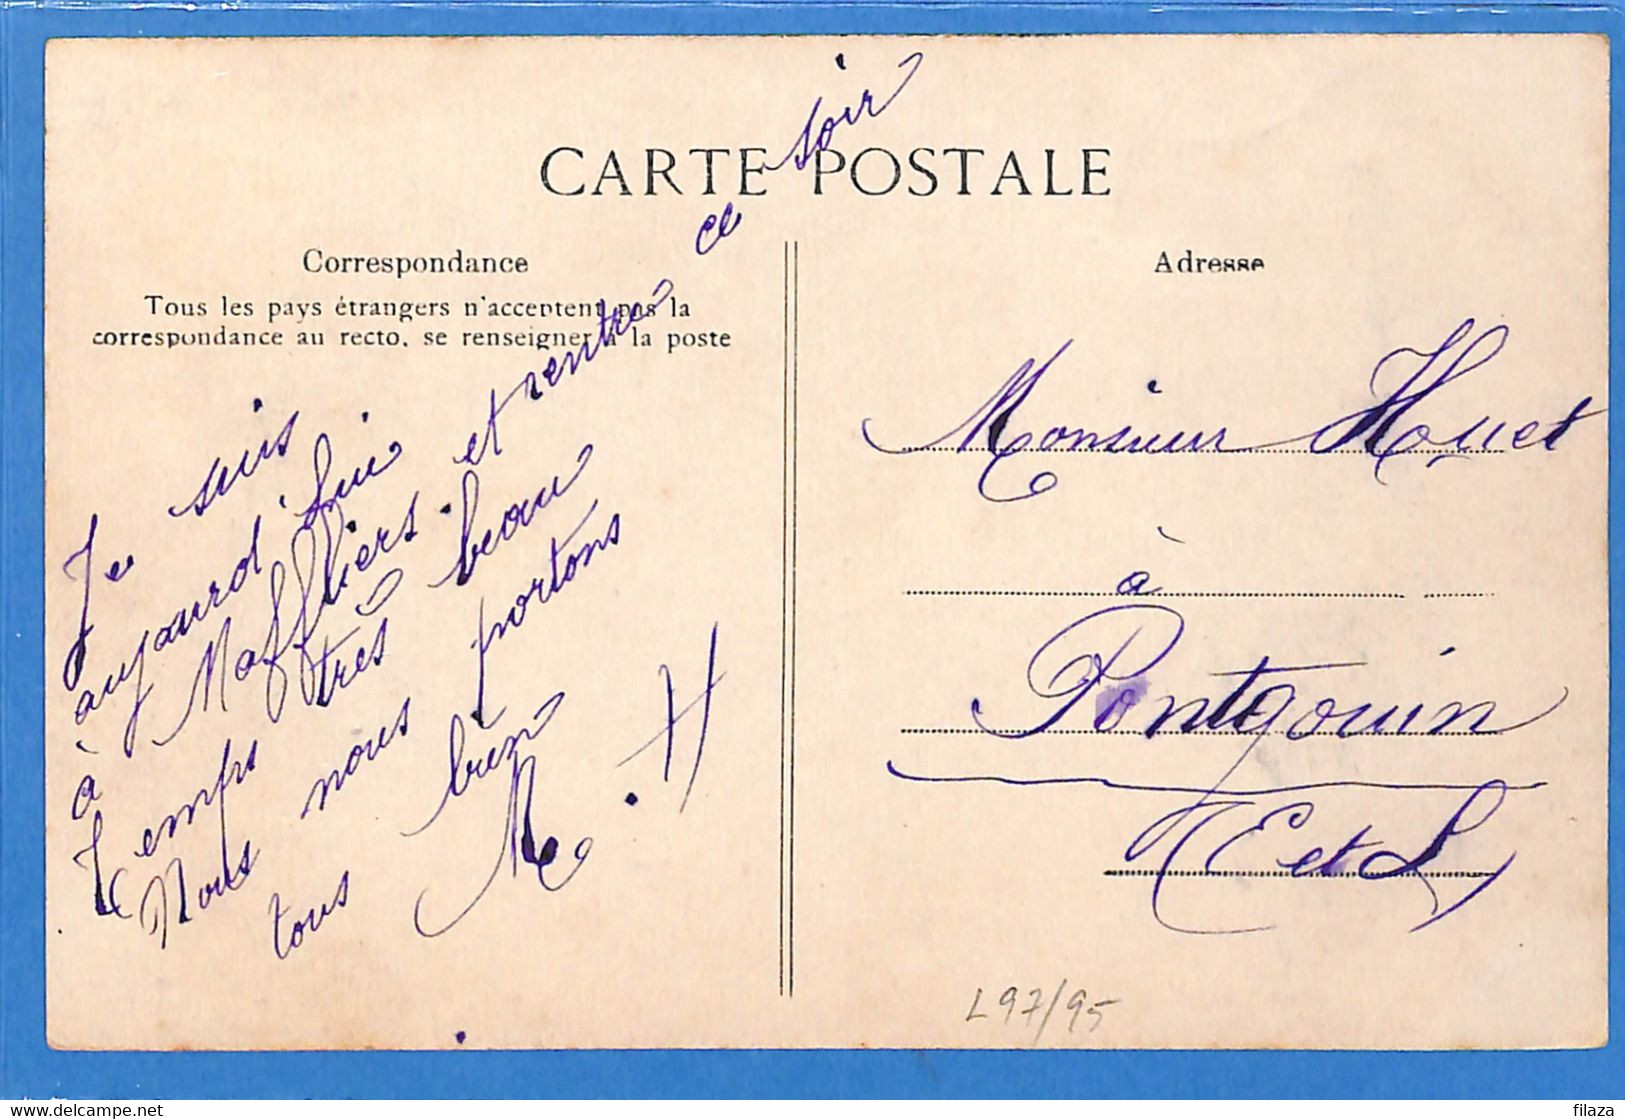 CARTE POSTALE
Correspondance
Tous les pays étrangers n'acceptent pas la
correspondance au recto, se renseigner à la poste
Je suis
aujourd'hui
à Maffliers. et rentre ce soir
temps très beau
Nous nous portons
tous bien
M. H
Adresse
Monsieur Houet
à
Pontgouin
(E et L)
L97/95
delcampe.net
filaza